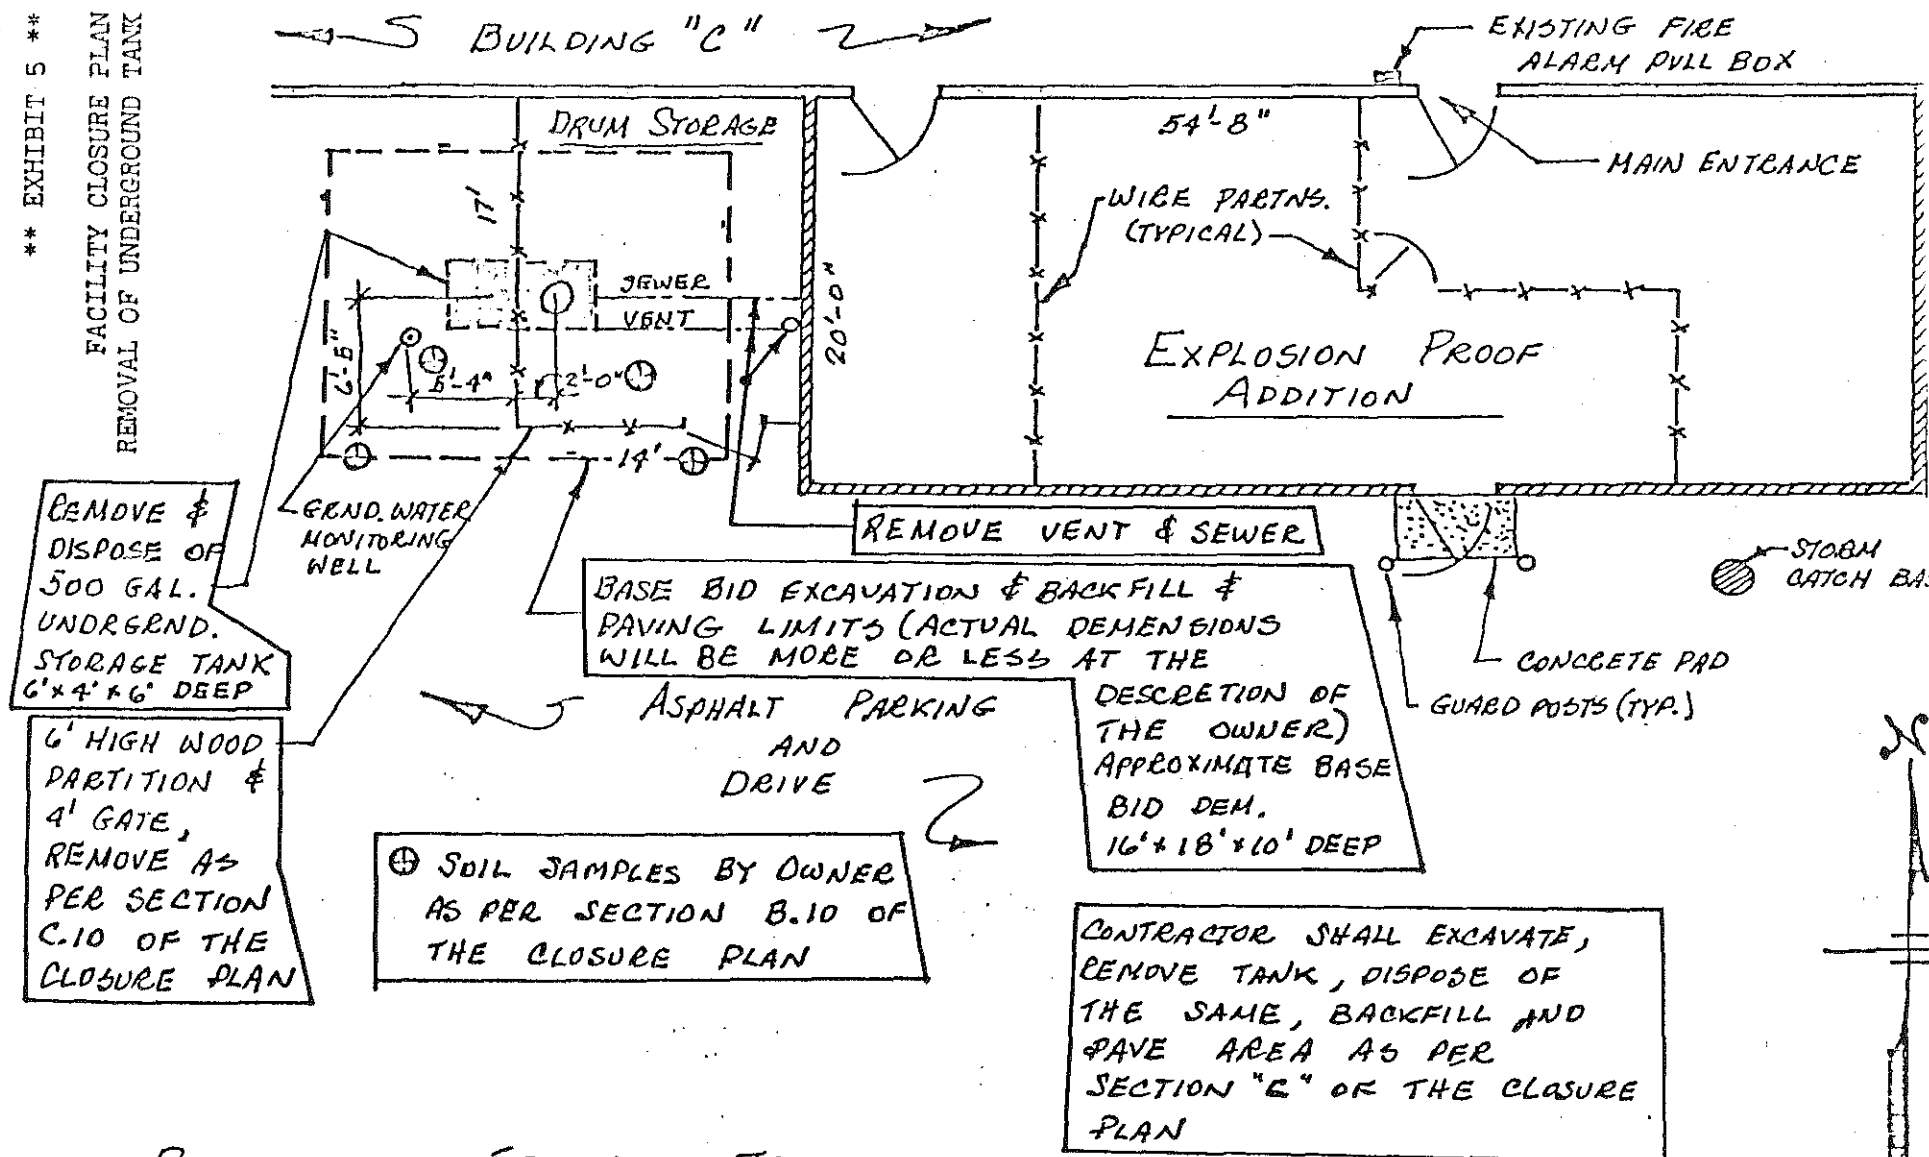 ** EXHIBIT 5 **
FACILITY CLOSURE PLAN
REMOVAL OF UNDERGROUND TANK
BUILDING "C"
EXISTING FIRE
ALARM PULL BOX
DRUM STORAGE
54'-8"
MAIN ENTRANCE
17'
WIRE PARTNS.
(TYPICAL)
SEWER
VENT
20'-0"
6'-6"
5'-4"
2'-0"
EXPLOSION PROOF
ADDITION
14'
REMOVE &
DISPOSE OF
500 GAL.
UNDRGRND.
STORAGE TANK
6'x4'x6' DEEP
GRND. WATER
MONITORING
WELL
REMOVE VENT & SEWER
STORM
CATCH BAS
BASE BID EXCAVATION & BACKFILL &
PAVING LIMITS (ACTUAL DEMENSIONS
WILL BE MORE OR LESS AT THE
DESCRETION OF
THE OWNER)
APPROXIMATE BASE
BID DEM.
16'x18'x10' DEEP
CONCRETE PAD
GUARD POSTS (TYP.)
ASPHALT PARKING
AND
DRIVE
6' HIGH WOOD
PARTITION &
4' GATE,
REMOVE AS
PER SECTION
C.10 OF THE
CLOSURE PLAN
SOIL SAMPLES BY OWNER
AS PER SECTION B.10 OF
THE CLOSURE PLAN
N
CONTRACTOR SHALL EXCAVATE,
REMOVE TANK, DISPOSE OF
THE SAME, BACKFILL AND
PAVE AREA AS PER
SECTION "C" OF THE CLOSURE
PLAN